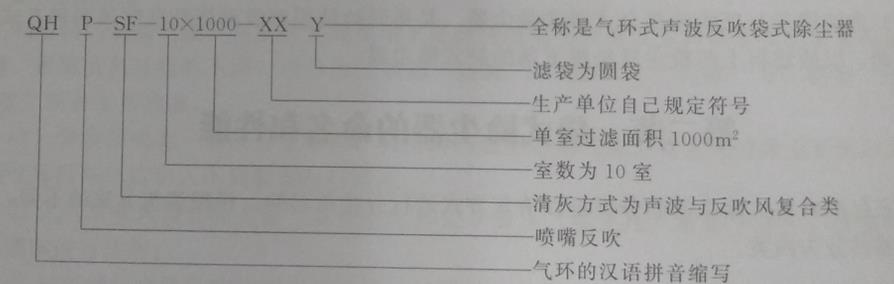 QH P—SF—10×1000—XX—Y 全称是气环式声波反吹袋式除尘器
滤袋为圆袋
生产单位自己规定符号
单室过滤面积 1000m²
室数为 10 室
清灰方式为声波与反吹风复合类
喷嘴反吹
气环的汉语拼音缩写